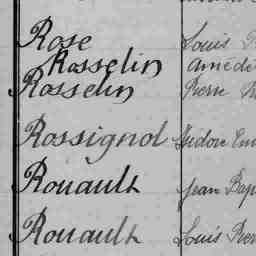 Rose Louis
Rosselin Amédé
Rosselin Pierre
Rossignol Isidore
Rouault Jean Bap
Rouault Louis Pier